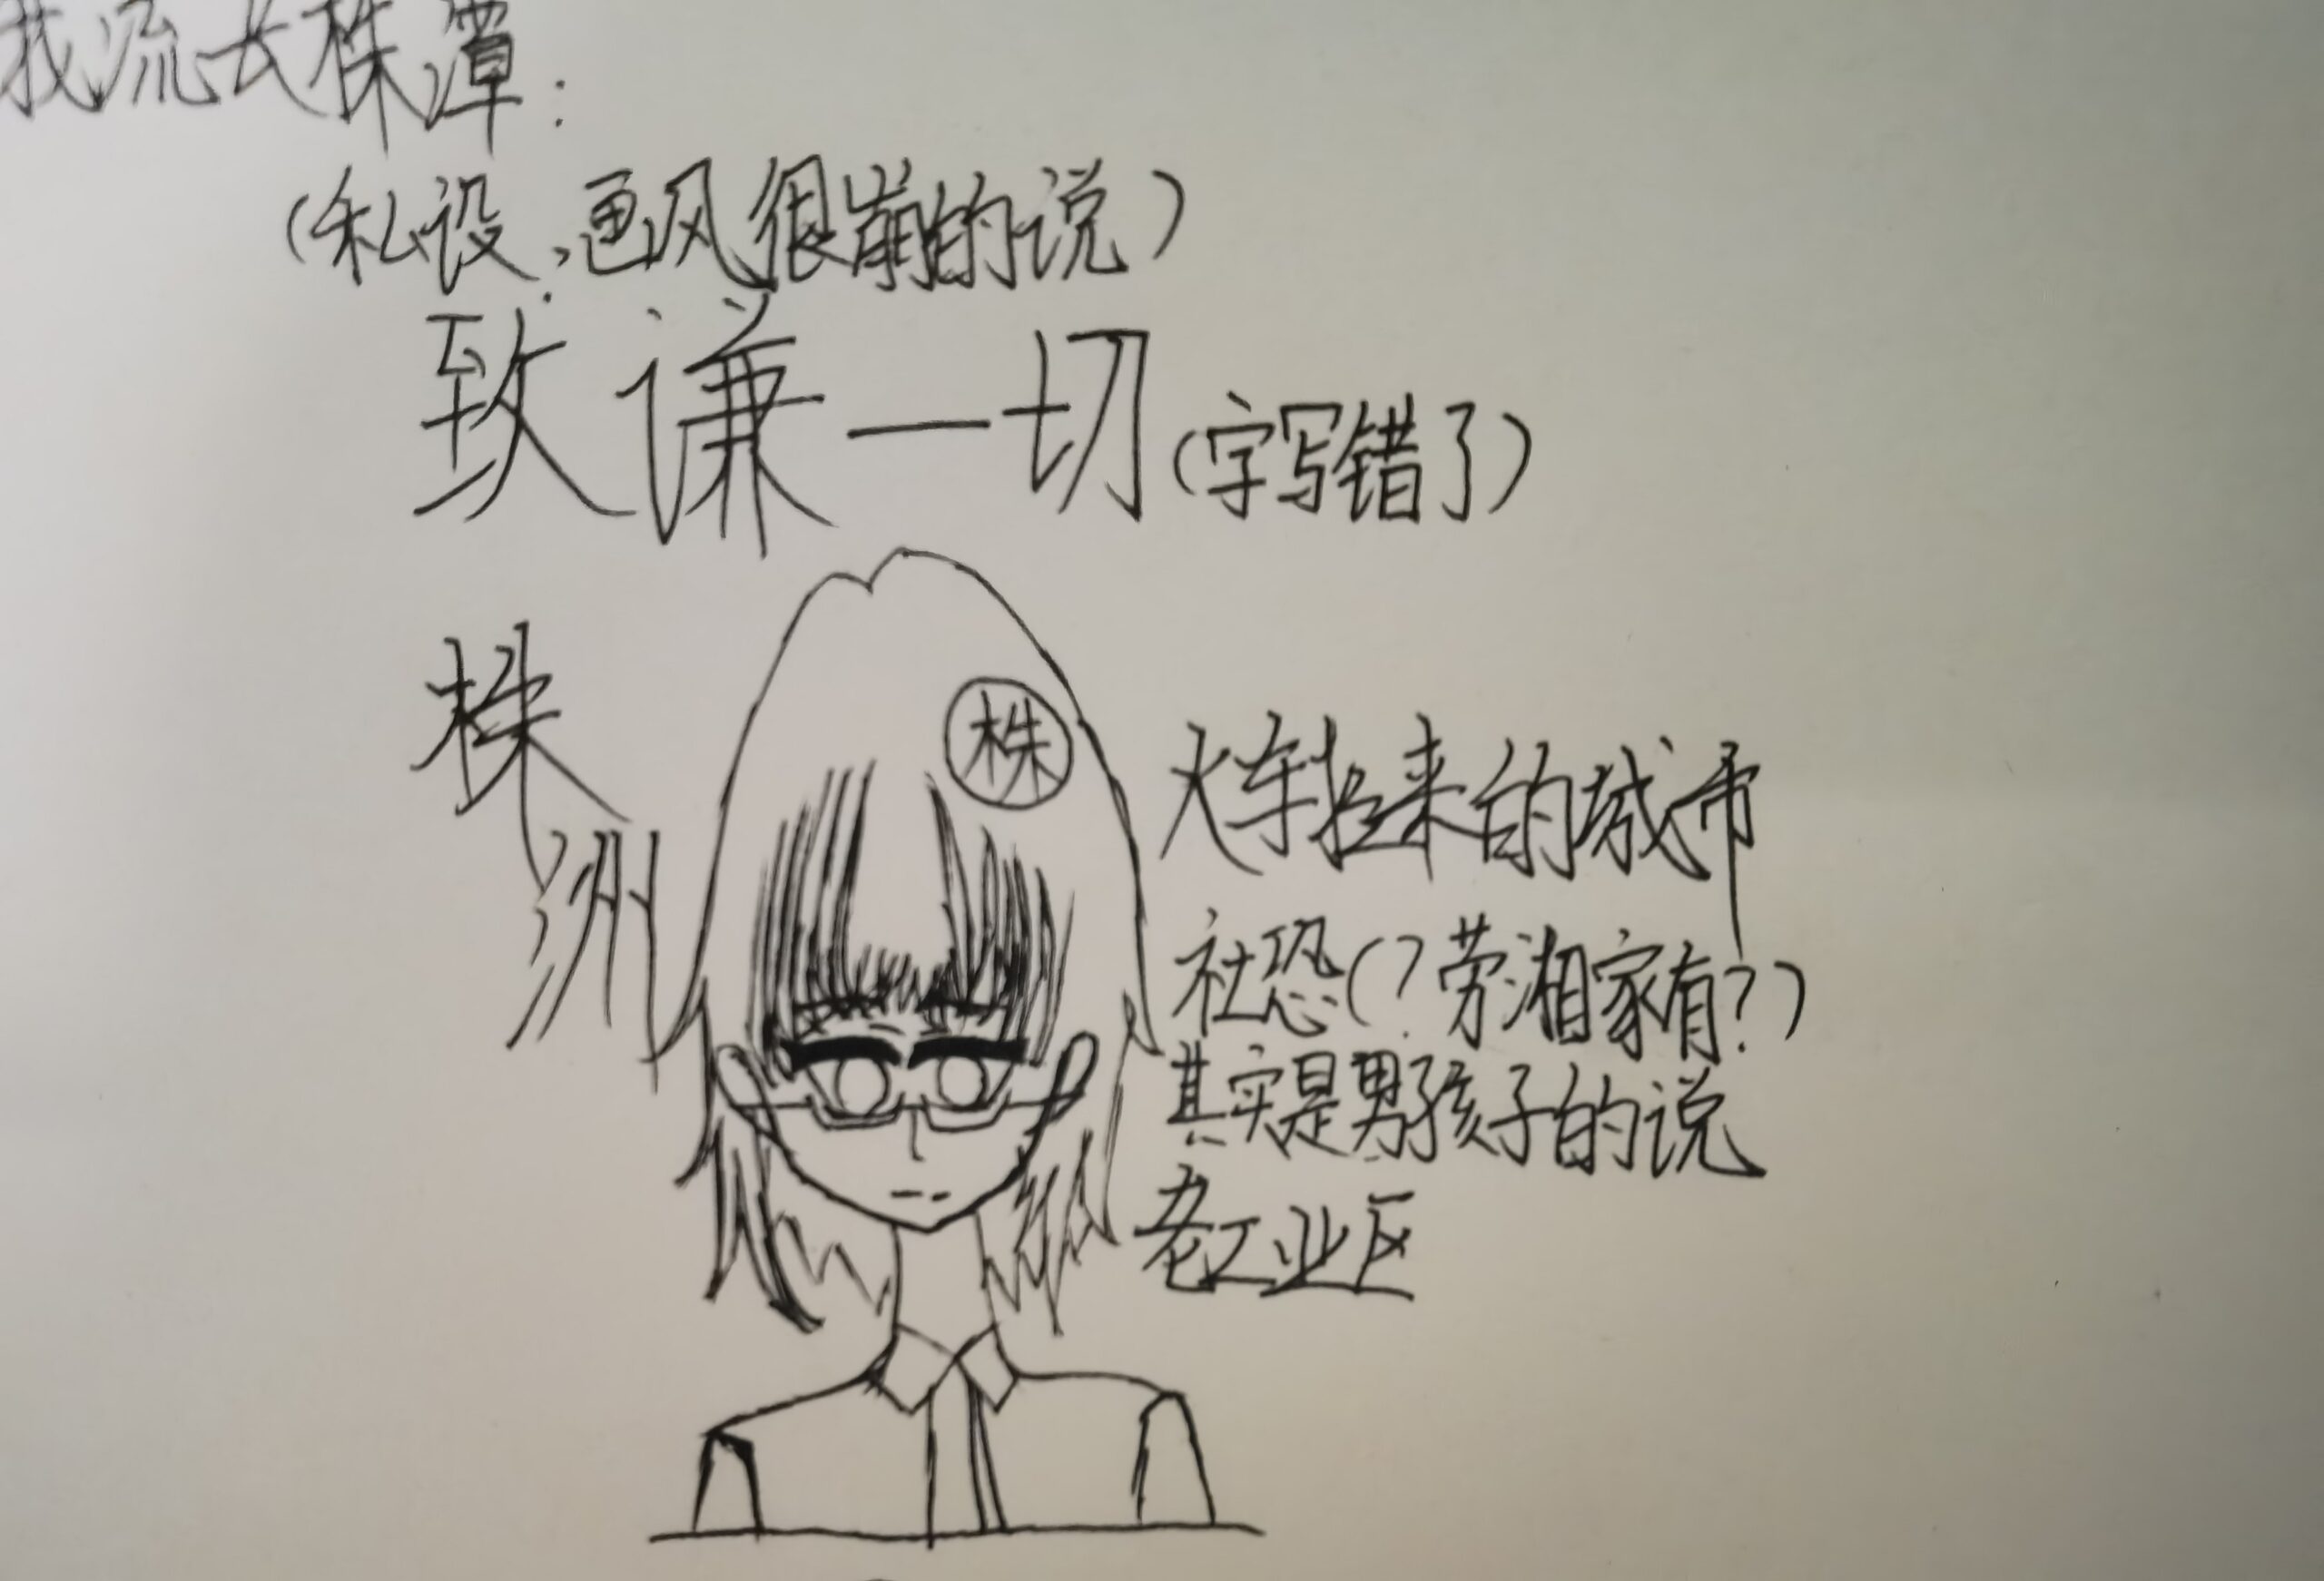 我流长株潭：
（私设，画风很崩的说）
致谦一切（字写错了）
株洲
株
火车拉来的城市
社恐（？劳湘家有？）
其实是男孩子的说
老工业区